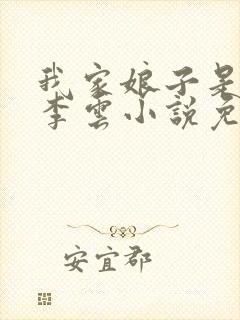 我家娘子是
李雲小說免
安宜郡